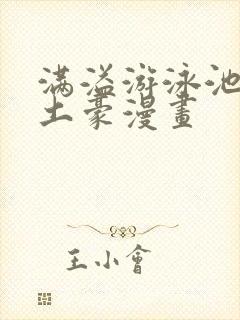 满溢游泳池
土豪漫畫
王小會